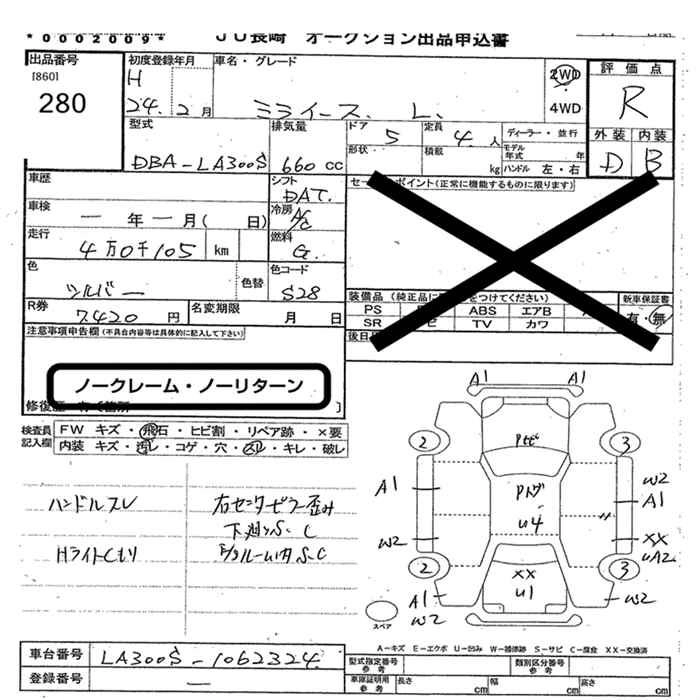 *0002009*
JU長崎 オークション出品申込書
出品番号
[860]
280
初度登録年月
H
24. 2月
車名・グレード
ミライース. L.
2WD
・
4WD
評価点
R
外装 内装
D B
型式
DBA-LA300S
排気量
660 cc
ドア
5
定員
4 人
形状・
積載
kg
ディーラー・並行
モデル
年式 年
ハンドル 左・右
車歴
シフト
DAT.
車検
一 年 一 月( 日)
冷房
A/C
走行
4万0千105 km
燃料
G.
色
シルバー
色替
色コード
S28
R券
7,420 円
名変期限
月 日
注意事項申告欄(不具合内容等は具体的に記入して下さい)
ノークレーム・ノーリターン
セールスポイント(正常に機能するものに限ります)
装備品(純正品に をつけてください)
新車保証書
PS
ABS
エアB
有・無
SR
TV
カワ
後日
検査員
記入欄
FW キズ・飛石・ヒビ割・リペア跡・×要
内装 キズ・汚レ・コゲ・穴・スレ・キレ・破レ
ハンドルスレ
右センターピラー歪み
下廻りS.C
Hライトくもり
ルーム内S.C
A1 A1
Pトビ
2 3
A1
Pトゲ
W2
A1
U4
W2
XX
UA2
2 3
XX
U1
A1
W2
W2
スペア
A-キズ E-エクボ U-凹み W-補修跡 S-サビ C-腐食 XX-交換済
車台番号
LA300S-1062324
登録番号
一
型式指定番号
参考
類別区分番号
参考
車庫証明用
参考
長さ cm
幅 cm
高さ cm